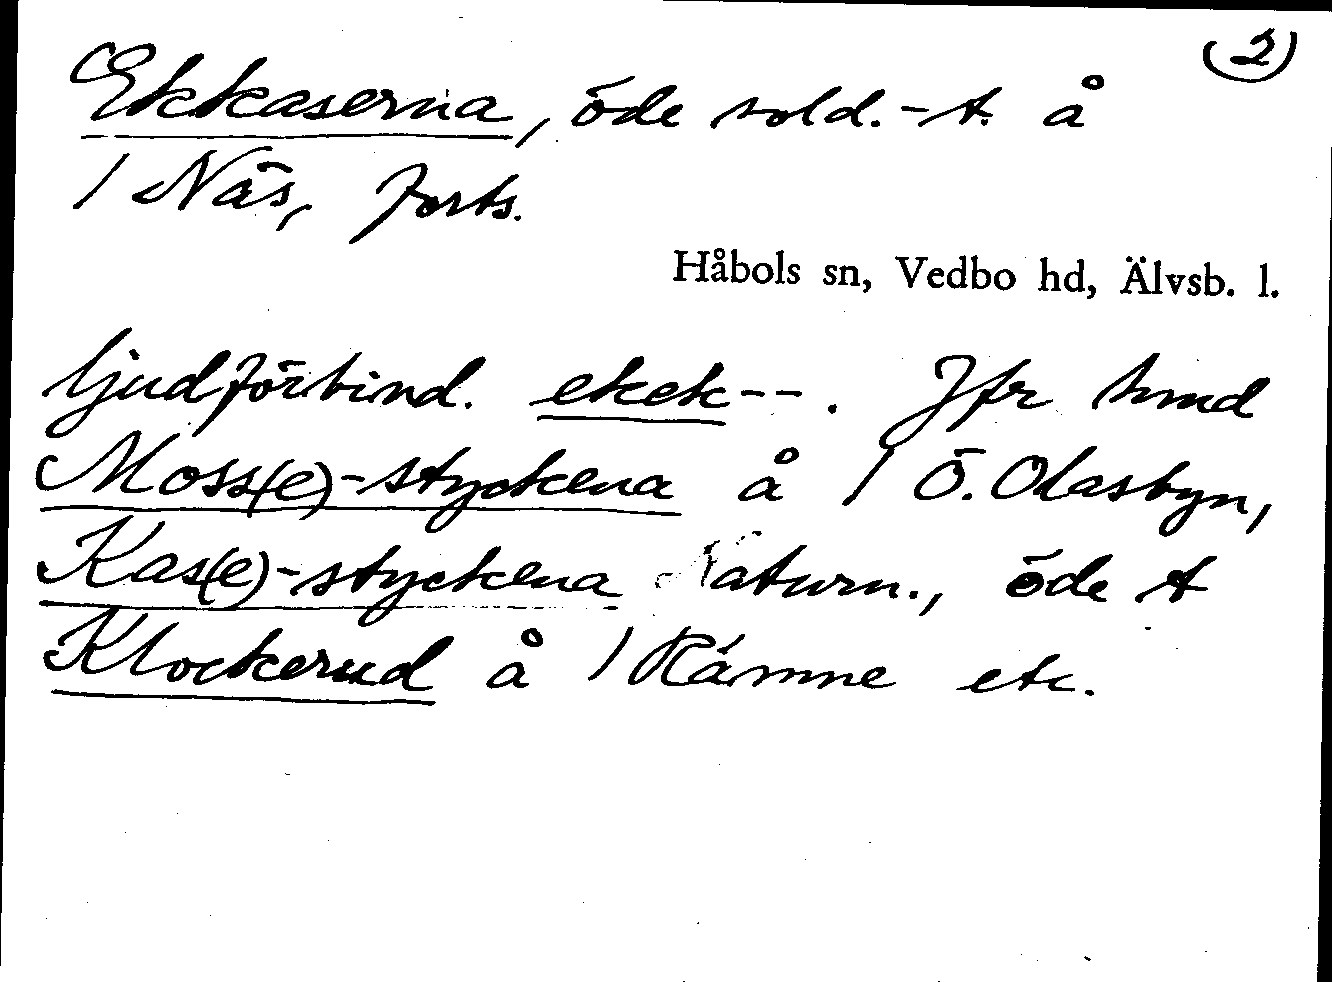 2
Ekkaserna, öde sold.-t. å
1 Näs, Forts.
Håbols sn, Vedbo hd, Älvsb. l.
ljudförbind. ekek--. Jfr hmd
Moss(e)-styckena å 1 Ö. Olasbyn,
Kas(e)-styckena Naturn., öde t
Klockerud å 1 Rämne etc.